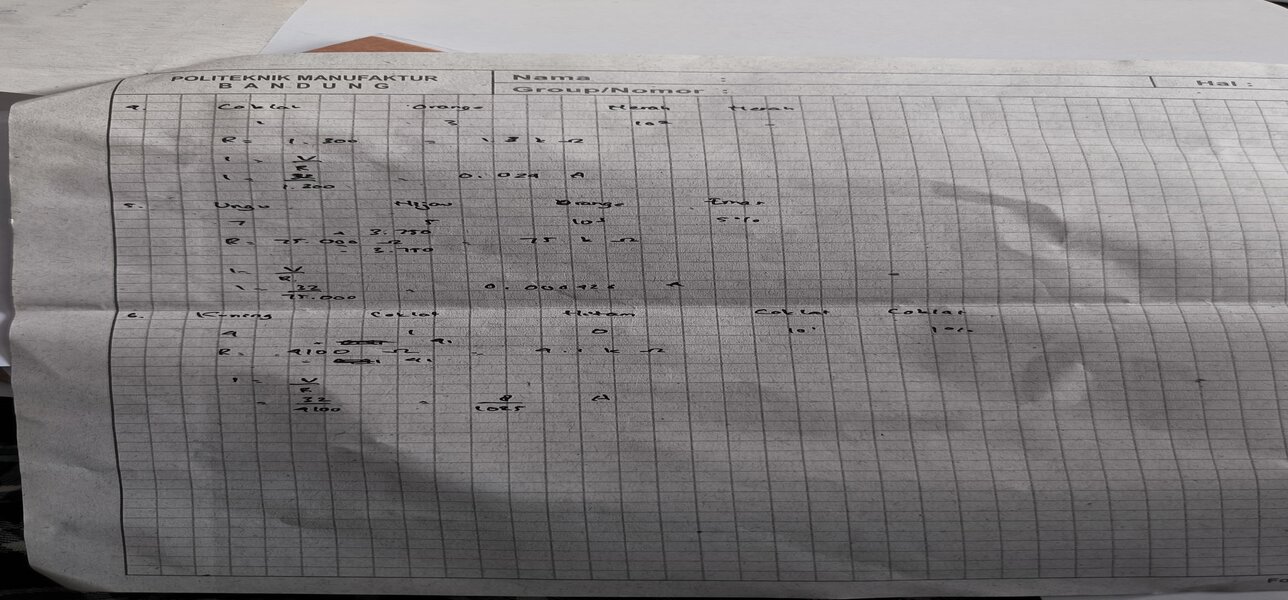 POLITEKNIK MANUFAKTUR
BANDUNG
Nama :
Group/Nomor :
Hal :
4. Coklat Orange Merah Merah
1 3 10²
R = 1.300 = 1.3 k Ω
I = V
R
I = 32
1.300 = 0.024 A
5. Ungu Hijau Orange Emas
7 5 10³ 5%
+ 3.750
R = 75.000 Ω = 75 k Ω
- 3.750
I = V
R
I = 32
75.000 = 0.000426 A
6. Kuning Coklat Hitam Coklat Coklat
4 1 0 10¹ 1%
+ 41
R = 4100 Ω = 4.1 k Ω
- 41
I = V
R
= 32
4100 = 8
1025 A